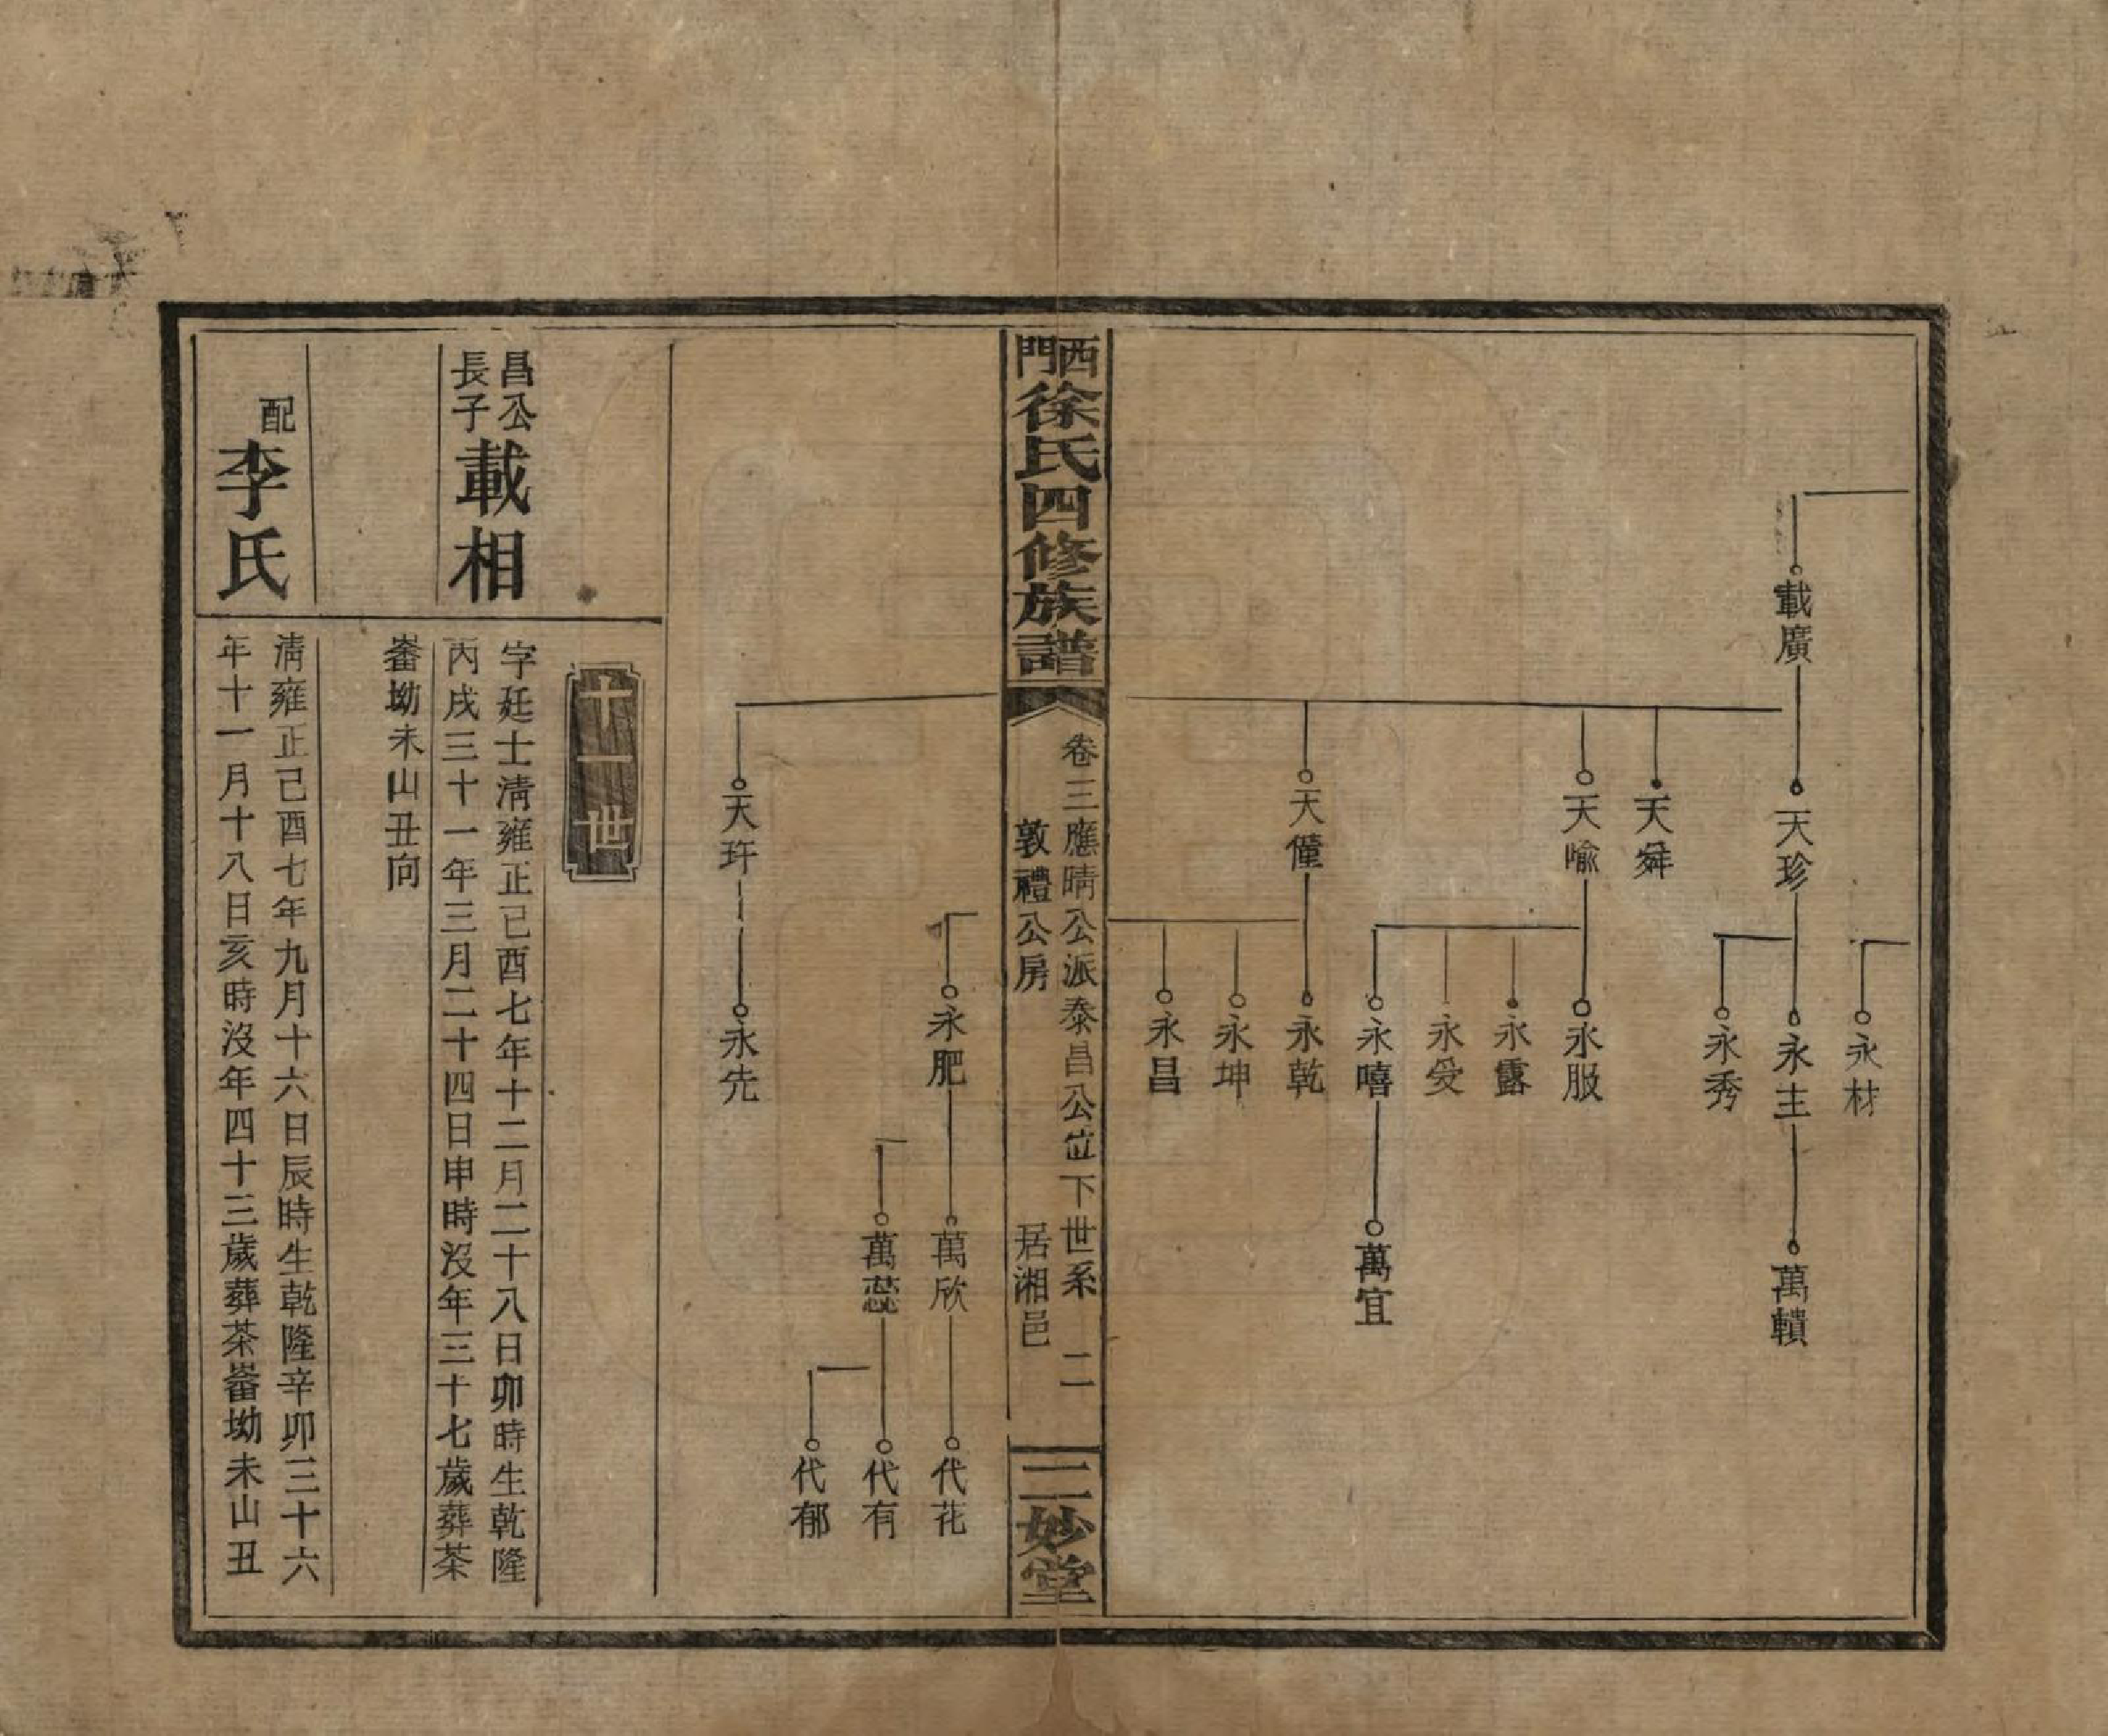 載廣
天珍
天舜
天喻
天僮
永材
永主
永秀
永服
永露
永受
永嘻
永乾
永坤
永昌
萬轒
萬宜
西門徐氏四修族譜
卷三應晴公派泰昌公位下世系 二
敦禮公房 居湘邑
三妙堂
天玝
永肥
永先
萬欣
萬蕊
代花
代有
代郁
十一世
昌公長子載相
字廷士淸雍正己酉七年十二月二十八日卯時生乾隆
丙戌三十一年三月二十四日申時沒年三十七歲葬茶
崙坳未山丑向
配李氏
淸雍正己酉七年九月十六日辰時生乾隆辛卯三十六
年十一月十八日亥時沒年四十三歲葬茶崙坳未山丑